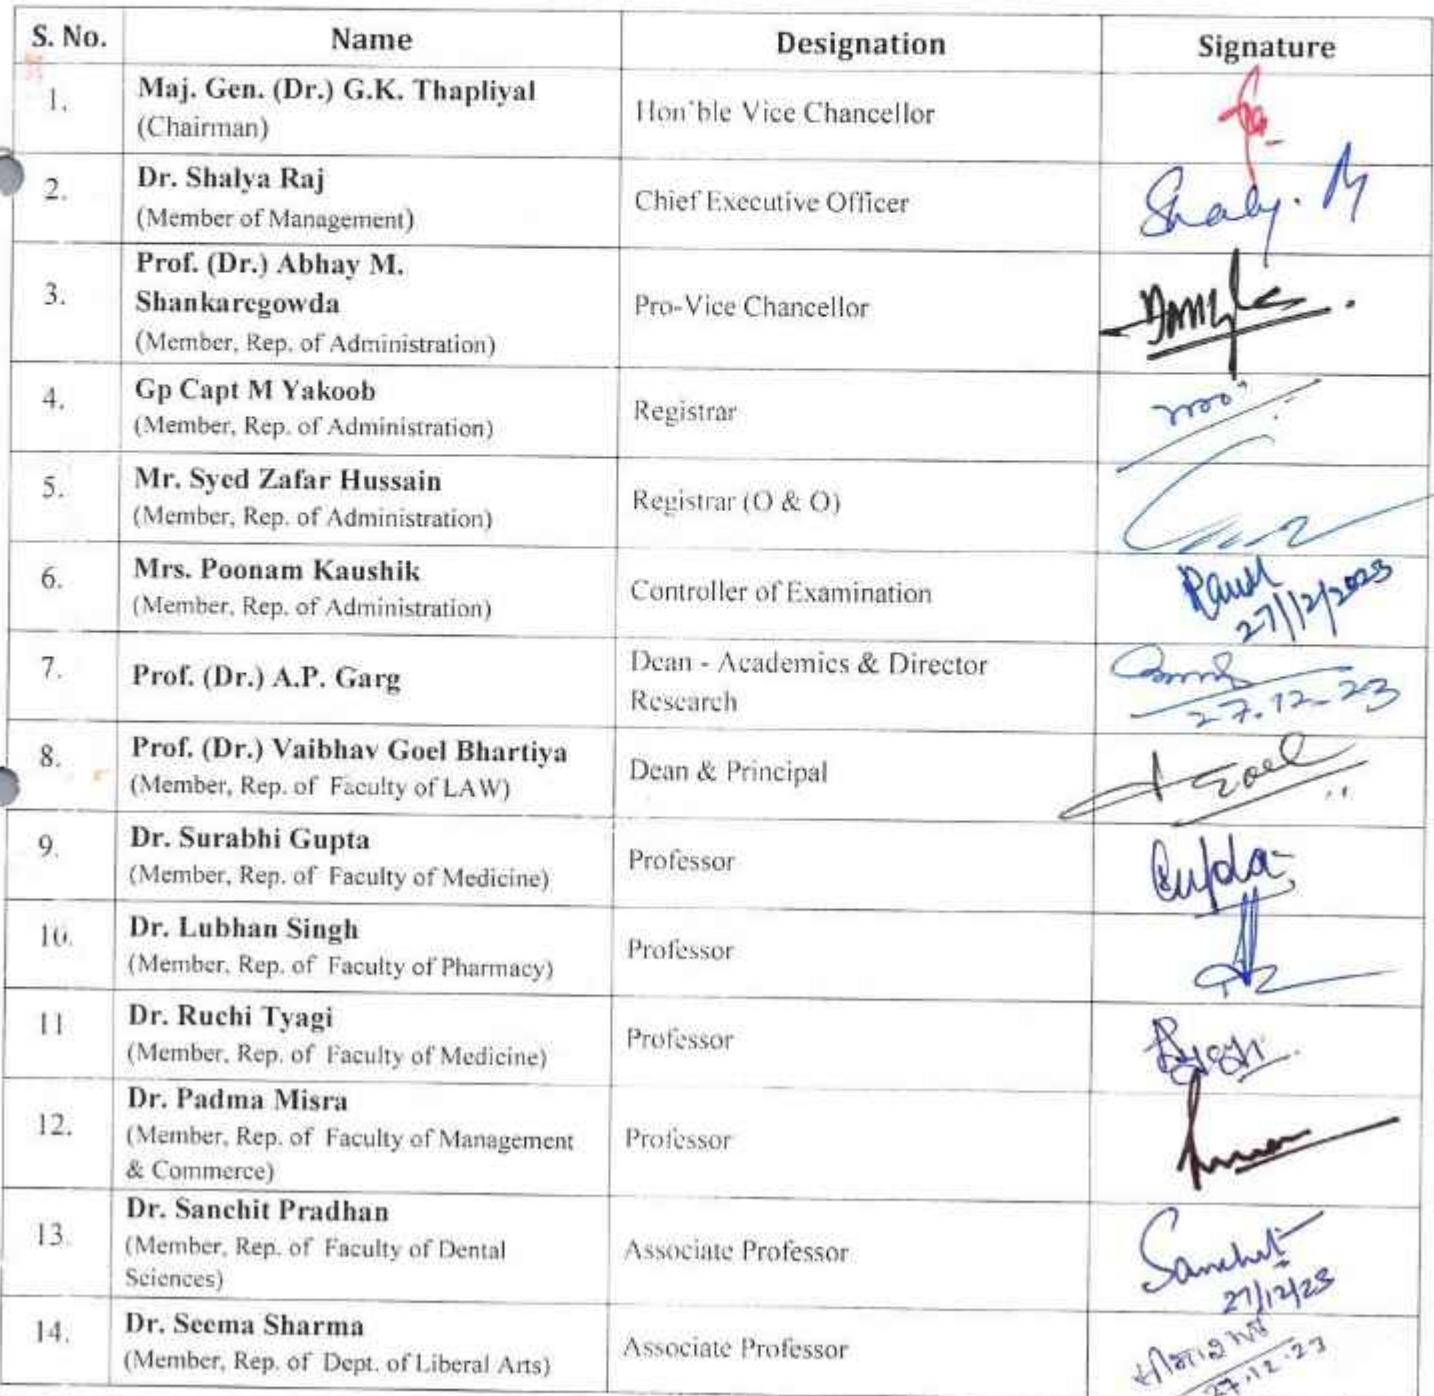 S. No. Name Designation Signature
1. Maj. Gen. (Dr.) G.K. Thapliyal
(Chairman)
Hon'ble Vice Chancellor
2. Dr. Shalya Raj
(Member of Management)
Chief Executive Officer
3. Prof. (Dr.) Abhay M.
Shankaregowda
(Member, Rep. of Administration)
Pro-Vice Chancellor
4. Gp Capt M Yakoob
(Member, Rep. of Administration)
Registrar
5. Mr. Syed Zafar Hussain
(Member, Rep. of Administration)
Registrar (O & O)
6. Mrs. Poonam Kaushik
(Member, Rep. of Administration)
Controller of Examination
27/12/2023
7. Prof. (Dr.) A.P. Garg
Dean - Academics & Director
Research
27.12.23
8. Prof. (Dr.) Vaibhav Goel Bhartiya
(Member, Rep. of Faculty of LAW)
Dean & Principal
Goel
9. Dr. Surabhi Gupta
(Member, Rep. of Faculty of Medicine)
Professor
Gupta
10. Dr. Lubhan Singh
(Member, Rep. of Faculty of Pharmacy)
Professor
11 Dr. Ruchi Tyagi
(Member, Rep. of Faculty of Medicine)
Professor
12. Dr. Padma Misra
(Member, Rep. of Faculty of Management
& Commerce)
Professor
13. Dr. Sanchit Pradhan
(Member, Rep. of Faculty of Dental
Sciences)
Associate Professor
Sanchit
27/12/23
14. Dr. Seema Sharma
(Member, Rep. of Dept. of Liberal Arts)
Associate Professor
27.12.23